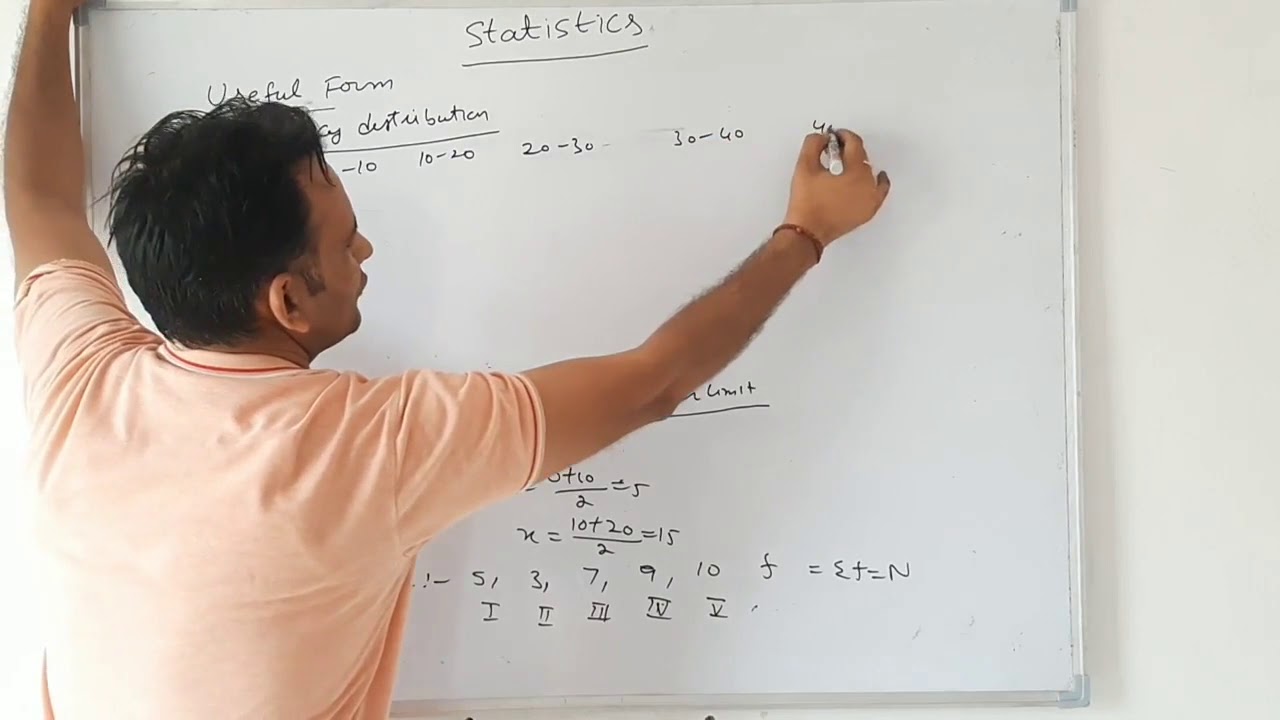 Statistics
Useful Form
distribution
-10 10-20 20-30 30-40 40
limit
0+10/2 = 5
x = 10+20/2 = 15
:- 5, 3, 7, 9, 10 f = Σf=N
I II III IV V